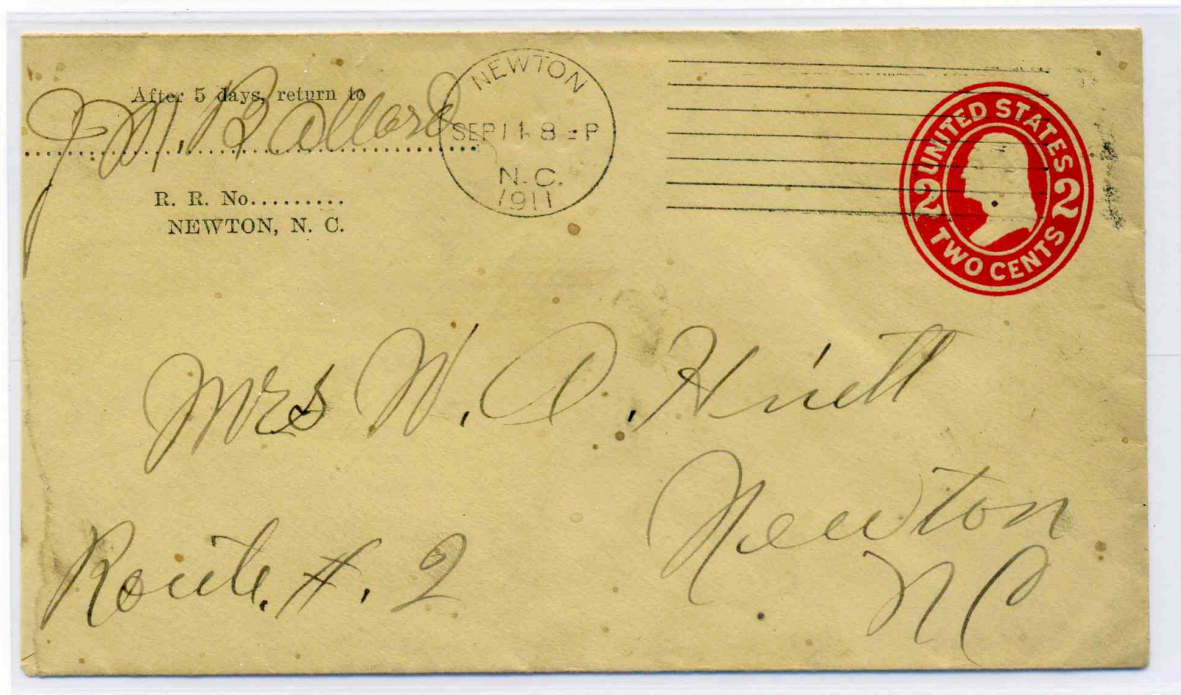 After 5 days, return to
J. M. Ballard
R. R. No.........
NEWTON, N. C.
NEWTON
SEP 11 8 - P
N.C.
1911
UNITED STATES
2 2
TWO CENTS
Mrs W. A. Hiett
Route #. 2
Newton
NC